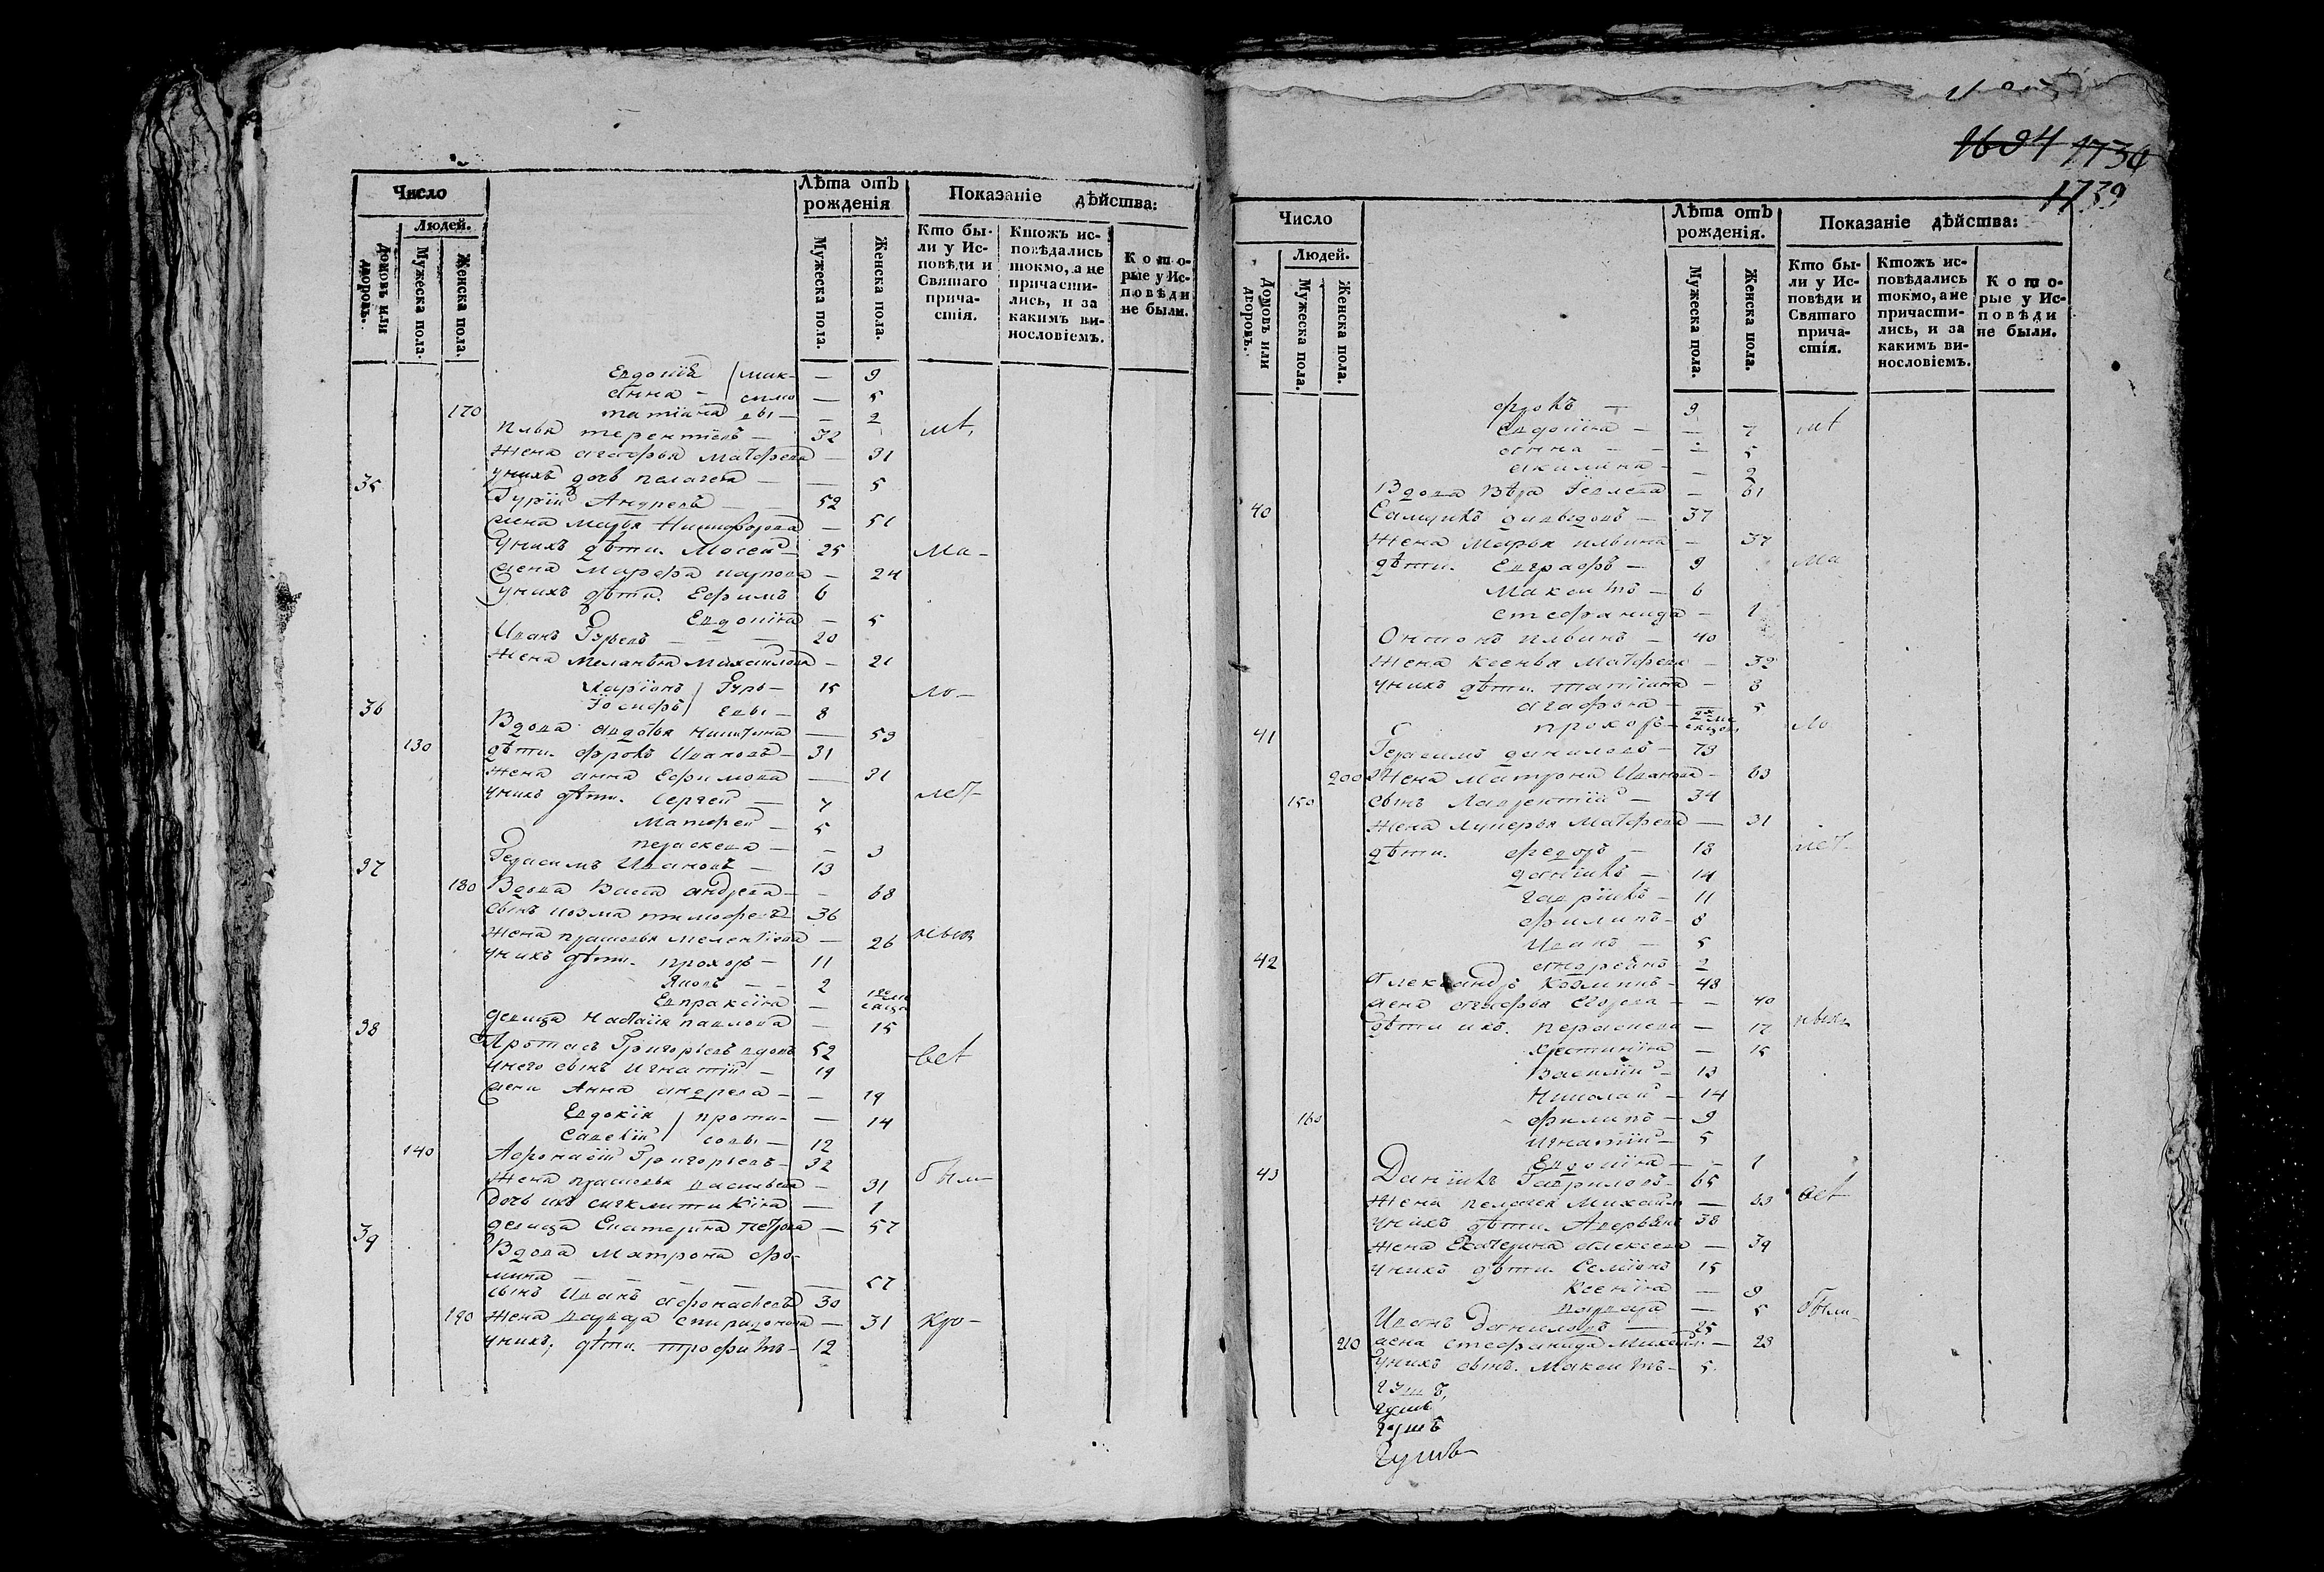 Число
Людей.
Домовъ или дворовъ.
Мужеска пола.
Женска пола.
Лѣта отъ рожденія
Мужеска пола.
Женска пола.
Показаніе дѣйства:
Кто были у Исповѣди и Святаго причастія.
Ктожъ исповѣдались токмо, а не причастились, и за какимъ винословіемъ.
Которые у Исповѣди не были.
Евдокіа / Мак- — 9
анна - / симо — 5
170 татіана вы — — 2
32
жена агафья Матфеева — 31
унихъ дочь пелагеа — — 5
35 Гурій Андреевъ — 52
жена марья Никифорова — 51
Унихъ дѣти. Моссей — 25
жена Марфа карпова — 24
унихъ дѣти. Ефимъ 6
Евдокіа — 5
Иванъ Гурьевъ — — — 20
жена меланья Михайлова — 21
Ларіонъ / Гурь- 15
Іосифъ / евы — 8
36 Вдова авдотья Никитина — 59
130 дѣти. фролъ Ивановъ — 31
жена анна Ефимова — 31
унихъ дѣти. Сергей — 7
Матфей — 5
пераскева — — 3
Герасимъ Ивановъ — 13
37 180 Вдова Васса андреева — — 68
сынъ козма тимофеевъ 36
26
унихъ дѣти. прохоръ — 11
Яковъ — — 2
Евпраксіа —
девица Наталіа павлова — 15
38 Протасъ Григорьевъ вдовъ 52
унего сынъ игнатій — 19
жена Анна андреева — — 19
Евдокіа / прота- — 14
Савелій / совы — 12
140 Афонасій Григорьевъ — 32
жена прасковья васильева — 31
дочь ихъ синклитикіа — 1
девица Екатерина петрова — 57
39 Вдова Матрона фо-
мина — — — — — 57
сынъ Иванъ афонасьевъ 30
190 жена варвара спиридонова — 31
унихъ, дѣти. трофимъ — 12
1694 1734
1739
Число
Людей.
Домовъ или дворовъ.
Мужеска пола.
Женска пола.
Лѣта отъ рожденія.
Мужеска пола.
Женска пола.
Показаніе дѣйства:
Кто были у Исповѣди и Святаго причастія.
Ктожъ исповѣдались токмо, а не причастились, и за какимъ винословіемъ.
Которые у Исповѣди не были.
фролъ — 9
Евдокіа — — 7
анна — — — 5
акилина — — 2
Вдова Вѣра — 61
40 37
жена Марья — 37
дѣти. Евграфъ — 9
Максимъ — 6
стефанида — 1
40
жена ксенья Матфеева — 32
унихъ дѣти. татіана — 8
агафьа — 5
прохоръ —
41 Герасимъ даниловъ — 73
200 жена матрона Иванова — 63
150 сынъ Лаврентій — 34
жена лукерья Матфеева — 31
дѣти. федоръ — 18
даніилъ — 14
гавріилъ — 11
филипъ — 8
Иванъ — 5
андреанъ — 2
42 Александръ Козминъ — 48
жена агафья Егорева — — 40
дѣти ихъ. пераскева — 17
христиніа — 15
Василій — 13
Николай — 14
160 филипъ — 9
игнатій — 5
Евдокіа — — 1
43 Даніилъ Гавриловъ — 65
жена пелагеа Михайло — 63
унихъ дѣти. Аверьянъ 38
жена Екатерина алексеева — 39
унихъ дѣти. Семіонъ 15
Ксеніа — 9
варвара — 5
Иванъ Даниловъ — 25
210 жена стефанида Михайл — 23
унихъ сынъ. Максимъ — 5